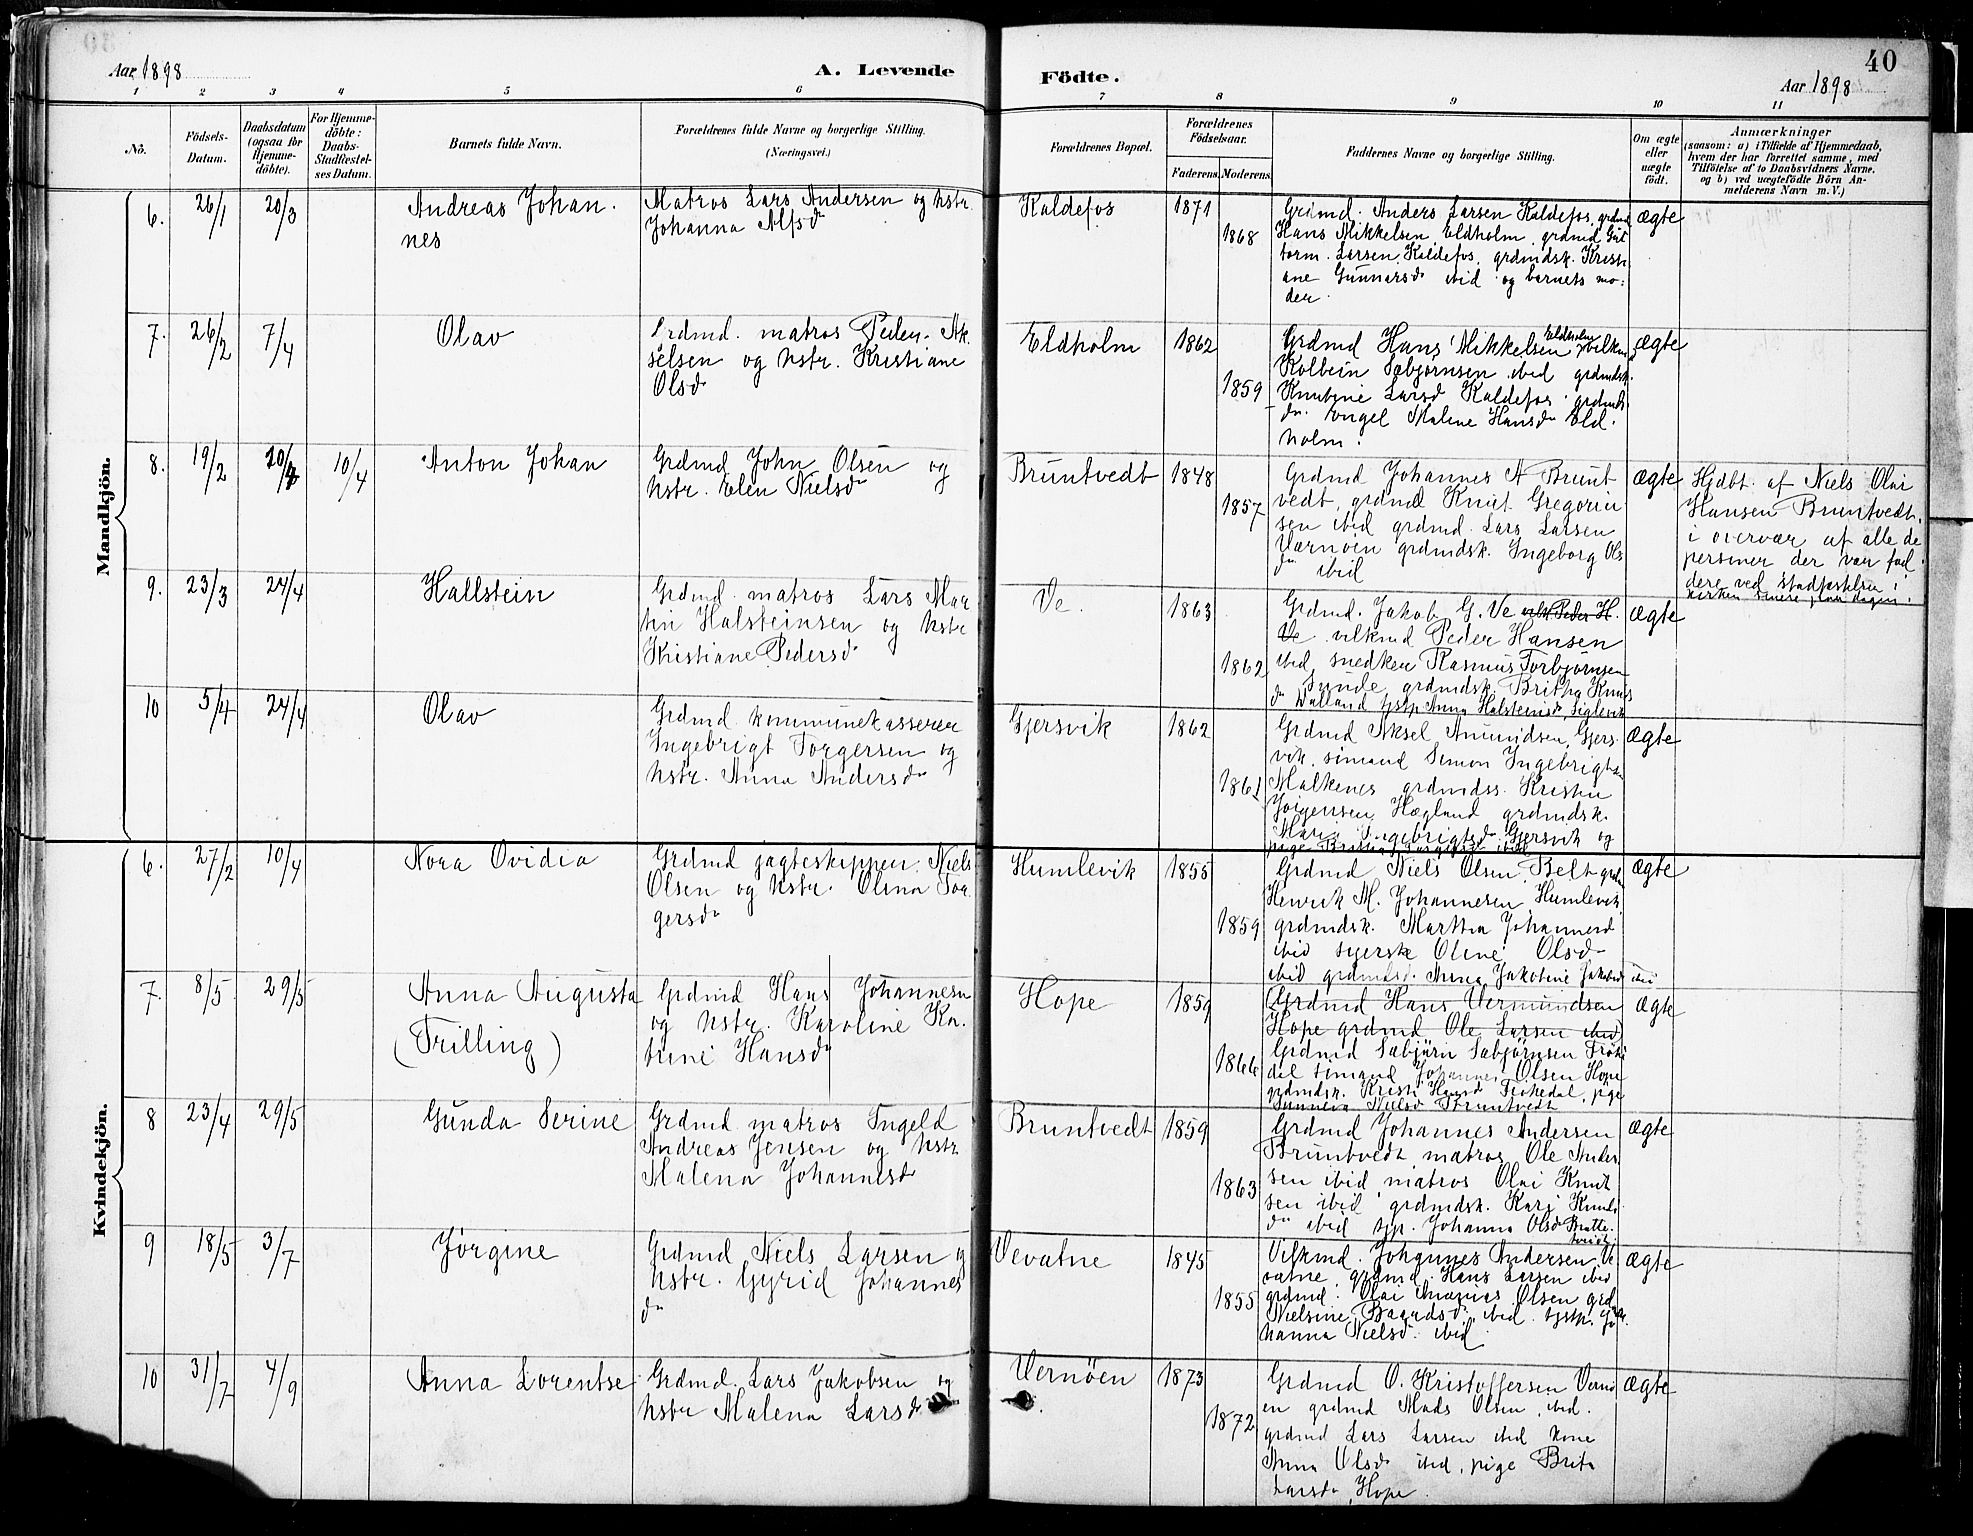 Aar 1898
A. Levende
Födte.
40
Aar 1898
1 2 3 4 5 6 7 8 9 10 11
No.
Födsels-
Datum.
Daabsdatum
(ogsaa for
Hjemme-
döbte).
For Hjemme-
döbte:
Daabs-
Stadfæstel-
ses Datum.
Barnets fulde Navn.
Forældrenes fulde Navne og borgerlige Stilling.
(Næringsvei.)
Forældrenes Bopæl.
Forældrenes
Födselsaar.
Faderens. Moderens.
Faddernes Navne og borgerlige Stilling.
Om ægte
eller
uægte
födt.
Anmærkninger
(saasom: a) i Tilfælde af Hjemmedaab,
hvem der har forrettet samme, med
Tilföielse af to Daabsvidners Navne.
og b) ved uægtefödte Börn An-
melderens Navn m. V.)
Mandkjön.
6. 26/1 20/3
Andreas Johan.
nes
Matros Lars Andersen og hstr.
Johanna Alfsdr
Kaldefos
1871
1868
Grdmd. Anders Larsen Kaldefos, grdmd
Hans Mikkelsen Eldholm, grdmd Gut
torm Larsen Kaldefos, grdmdsk. Kristi
ane Gunnarsdr ibid og barnets mo:
der.
ægte
7. 26/2 7/4
Olav
Grdmd. matros Peder Ak.
selsen og hstr. Kristiane
Olsdr
Eldholm
1862
1859
Grdmd Hans Mikkelsen Eldholm,
Kolbein Sebjørnsen ibid grdmdsk.
Knutine Larsd Kaldefos
Malene Hansdr Eld.
holm.
ægte
8. 19/2 10/4
Anton Johan
Grdmd John Olsen og
hstr. Elen Nielsdr
Bruntvedt
1848
1857
Grdmd Johannes A Brunt
vedt, grdmd Knut Gregorius
sen ibid grdmd. Lars Larsen
Værnøen grdmdsk. Ingeborg Ols
dr ibid
ægte
Hjdbt. af Niels Olai
Hansen Bruntvedt.
i overvær af alle de
personer der var fad
dere ved stadfæstelsen i
kirken
9. 23/3 24/4
Hallstein
Grdmd. matros Lars Mar
tin Halsteinsen og hstr
Kristiane Pedersdr
Ve.
1863
1862
Grdmd. Jakob G. Ve
Ve vilkmd Peder Hansen
ibid, snedker Rasmus Torbjørnsen
Sunde, grdmdsk. Britha Knuts
dr
ægte
10 5/4 24/4
Olav
Grdmd. kommunekasserer
Ingebrigt Torgersen og
hstr. Anna Andersdr
Gjersvik
1862
1861
Grdmd Aksel Amundsen, Gjers
vik, sømand Simon Ingebrigtsen
Malkenes grdmdss. Kristen
Jørgensen Hægland grdmdsk.
Maria Ingebrigtsdr Gjersvik og
ægte
Kvindekjön.
6. 27/2 10/4
Nora Ovidia
Grdmd jagteskipper Niels
Olsen og hstr. Olina Tor
gersdr
Humlevik
1855
1859
Grdmd Niels Olsen Belt
Henrik M. Johannesen Humlevik,
grdmdsk. Martha Johannesd
ibid syerske Oline Olsdr
ibid Anna Jakobine Jakobsdr ibid
ægte
7. 8/5 29/5
Anna Augusta
(Trilling)
Grdmd Hans Johannesen
og hstr. Karoline Ka.
trine Hansdr
Hope
1859
1866
Grdmd Hans Vermundsen
Hope grdmd Ole Larsen ibid
Grdmd Sæbjørn Sæbjørnsen
sømand Johannes Olsen Hope
grdmdsk. Kristi pige
Nielsd Bruntvedt
ægte
8 23/4 29/5
Gunda Serine
Grdmd matros Ingeld
Andreas Jensen og hstr.
Malena Johannesdr
Bruntvedt
1859
1863
Grdmd Johannes Andersen
Bruntvedt matros Ole Ander
sen ibid matros Olai Knut
sen ibid grdmdsk. Kari Knuts
dr ibid tjp. Johanna Olsdr
ægte
9 18/5 3/7
Jørgine
Grdmd Niels Larsen og
hstr. Gyrid Johannes
dr
Vevatne
1845
1855
Vilkmd. Johannes Andersen Ve
vatne, grdmd. Hans Larsen ibid
grdmd. Olai Olsen
Nielsine Baardsd. ibid Jo
hanna Nielsd. ibid
ægte
10 31/7 4/9
Anna Lorentse
Grdmd. Lars Jakobsen og
hstr Malena Larsdr
Vernöen
1873
1872
Grdmd O. Kristoffersen Vernö
en grdmd Mads Olsen, ibid.
grdmd Lars Larsen ibid kone
Anna Olsdr ibid, pige Brita
Larsdr, Hope.
ægte